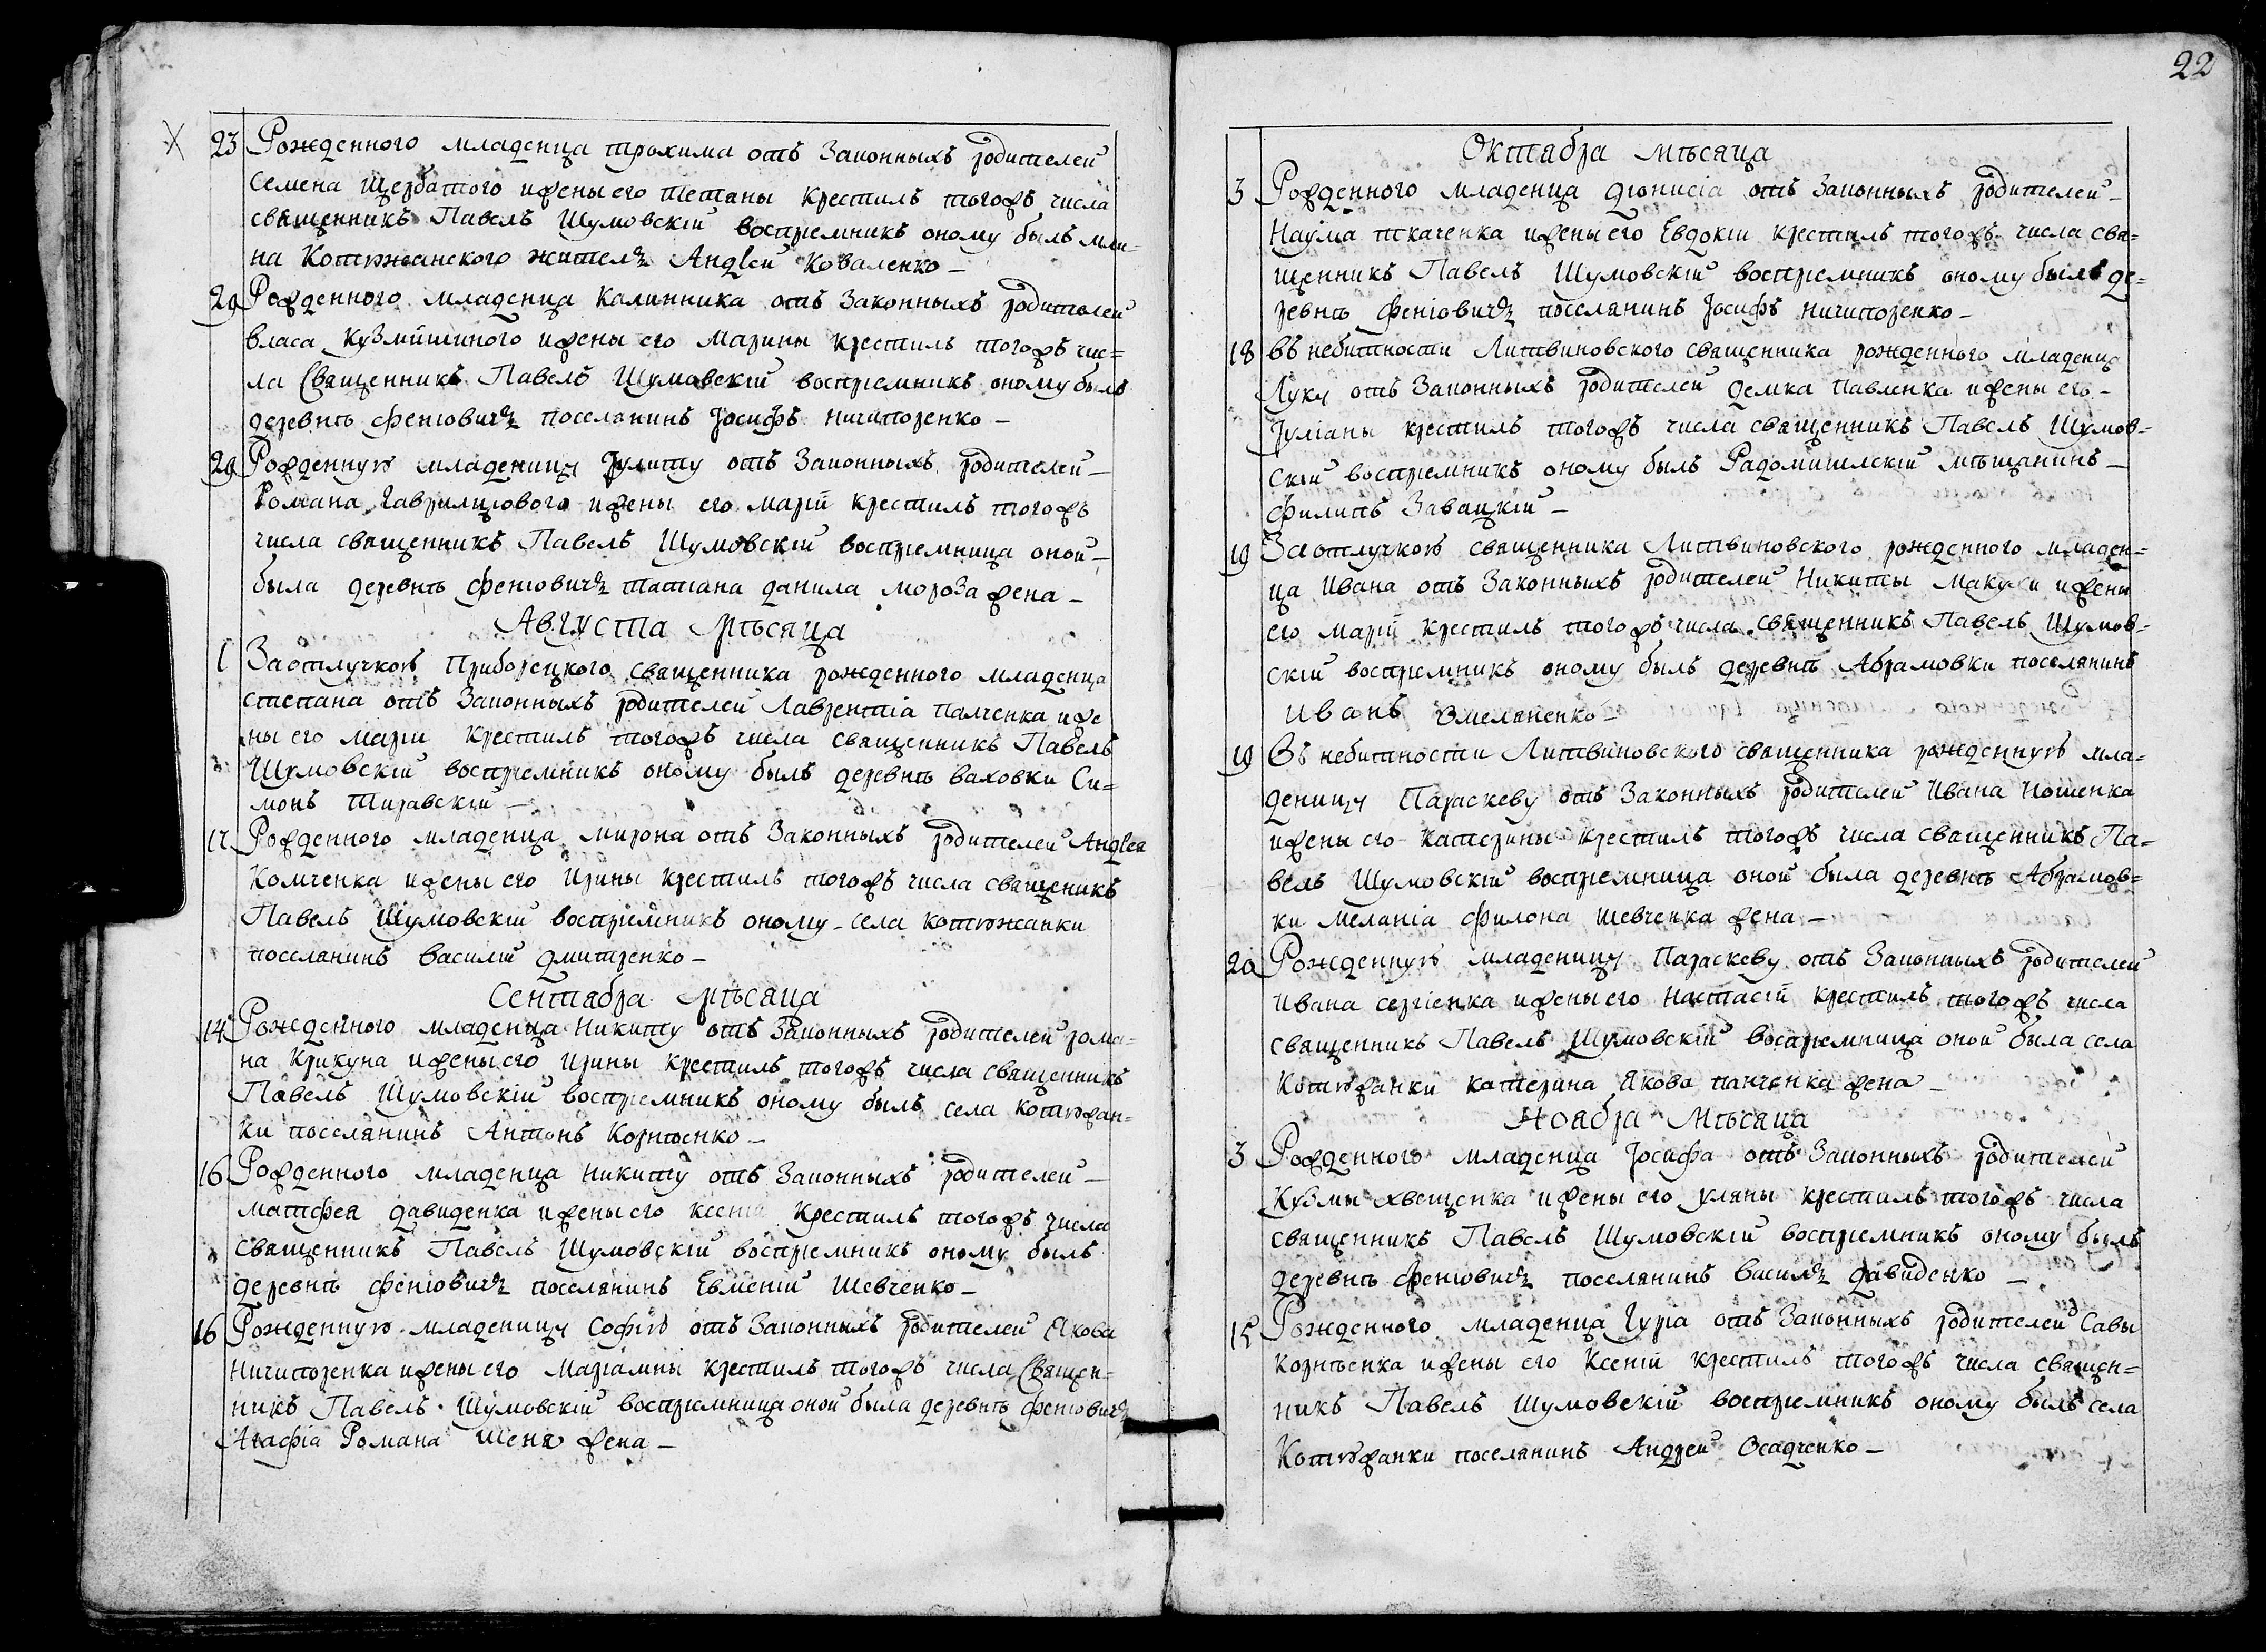 23 Рожденного младенца трохима отъ Законныхъ родителей
Семена Щербатого ижены его Тетяны крестилъ тогожъ числа
священникъ Павелъ Шумовскій воспріемникъ оному былъ мли-
на Котюжанского жителъ Андрей Коваленко
29 Рожденного младенца Калинника отъ Законныхъ родителей
власа Кузмишиного ижены его Марины крестилъ тогожъ чис=
ла Священникъ Павелъ Шумовскій воспріемникъ оному былъ
деревнѣ Феніовичъ поселянинъ Іосифъ ничипоренко
29 Рожденную младеницу Іулиту отъ Законныхъ родителей
Романа Гаврилцового ижены его Маріи крестилъ тогожъ
числа священникъ Павелъ Шумовскій воспріемница оной
была деревнѣ Феніовичъ татіана данила мороза жена
Августа мѣсяца
1 Заотлучкою Приборецкого священника рожденного младенца
степана отъ Законныхъ родителей Лаврентіа палченка иже
ны его Маріи крестилъ тогожъ числа священникъ Павелъ
Шумовскій воспріемникъ оному былъ деревнѣ ваховки Си=
монъ Тиравскій
17 Рожденного младенца мирона отъ Законныхъ родителей Андрея
Комченка ижены его Ирины крестилъ тогожъ числа священикъ
Павелъ Шумовскій воспріемникъ оному села котюжанки
поселянинъ василій дмитренко
Сентабра мѣсяца
14 Рожденного младенца Никиту отъ Законныхъ родителей рома=
на Крикуна ижены его Ирины крестилъ тогожъ числа священникъ
Павелъ Шумовскій воспріемникъ оному былъ села котюжан=
ки поселянинъ Антонъ Корнѣенко
16 Рожденного младенца никиту отъ Законныхъ родителей
матфея давиденка ижены его ксеніи крестилъ тогожъ числа
священникъ Павелъ Шумовскій воспріемникъ оному былъ
деревнѣ феніовичъ поселянинъ Евменій Шевченко
16 Рожденную младеницу Софію отъ Законныхъ родителей Якова
Ничипоренка ижены его Маріамны крестилъ тогожъ числа Священ-
никъ Павелъ Шумовскій воспріемница оной была деревнѣ феніовичъ
Агафіа Романа Шеня жена
22
Октабра мѣсяца
3 Рожденного младенца діонисіа отъ Законныхъ родителей
Наума ткаченка ижены его Евдокіи крестилъ тогожъ числа свя=
щенникъ Павелъ Шумовскій воспріемникъ оному былъ де=
ревнѣ Феніовичъ поселянинъ Іосифъ ничипоренко
18 въ небитности Литвиновского священника рожденного младенца
Луку отъ Законныхъ родителей демка павленка ижены его
Іуліаны крестилъ тогожъ числа священникъ Павелъ Шумов=
скій воспріемникъ оному былъ Радомишлскій мѣщанинъ
Филипъ Завацкій
19 Заотлучкою священника Литвиновского рожденного младен=
ца Ивана отъ Законныхъ родителей Никиты ижены
его Маріи крестилъ тогожъ числа священникъ Павелъ Шумов=
скій воспріемникъ оному былъ деревнѣ Абрамовки поселянинъ
Иванъ Змеляненко
19 Въ небитности Литвиновского священника рожденную мла=
деницу Параскеву отъ Законныхъ родителей Ивана Ношенка
ижены его катерины крестилъ тогожъ числа священникъ Па=
велъ Шумовскій воспріемница оной была деревнѣ Абрамов=
ки меланіа Филона шевченка жена
20 Рожденную младеницу Параскеву отъ Законныхъ родителей
Ивана сергіенка ижены его Настасіи крестилъ тогожъ числа
священникъ Павелъ Шумовскій воспріемница оной была села
Котюжанки катерина Якова панченка жена
Ноябра мѣсяца
3 Рожденного младенца Іосифа отъ Законныхъ родителей
Кузмы хвещенка ижены его уляны крестилъ тогожъ числа
священникъ Павелъ Шумовскій воспріемникъ оному былъ
деревнѣ феніовичъ поселянинъ василъ давиденко
15 Рожденного младенца Гуріа отъ Законныхъ родителей Савы
корнѣенка ижены его Ксеніи крестилъ тогожъ числа священ=
никъ Павелъ Шумовскій воспріемникъ оному былъ села
Котюжанки поселянинъ Андрей Осадченко